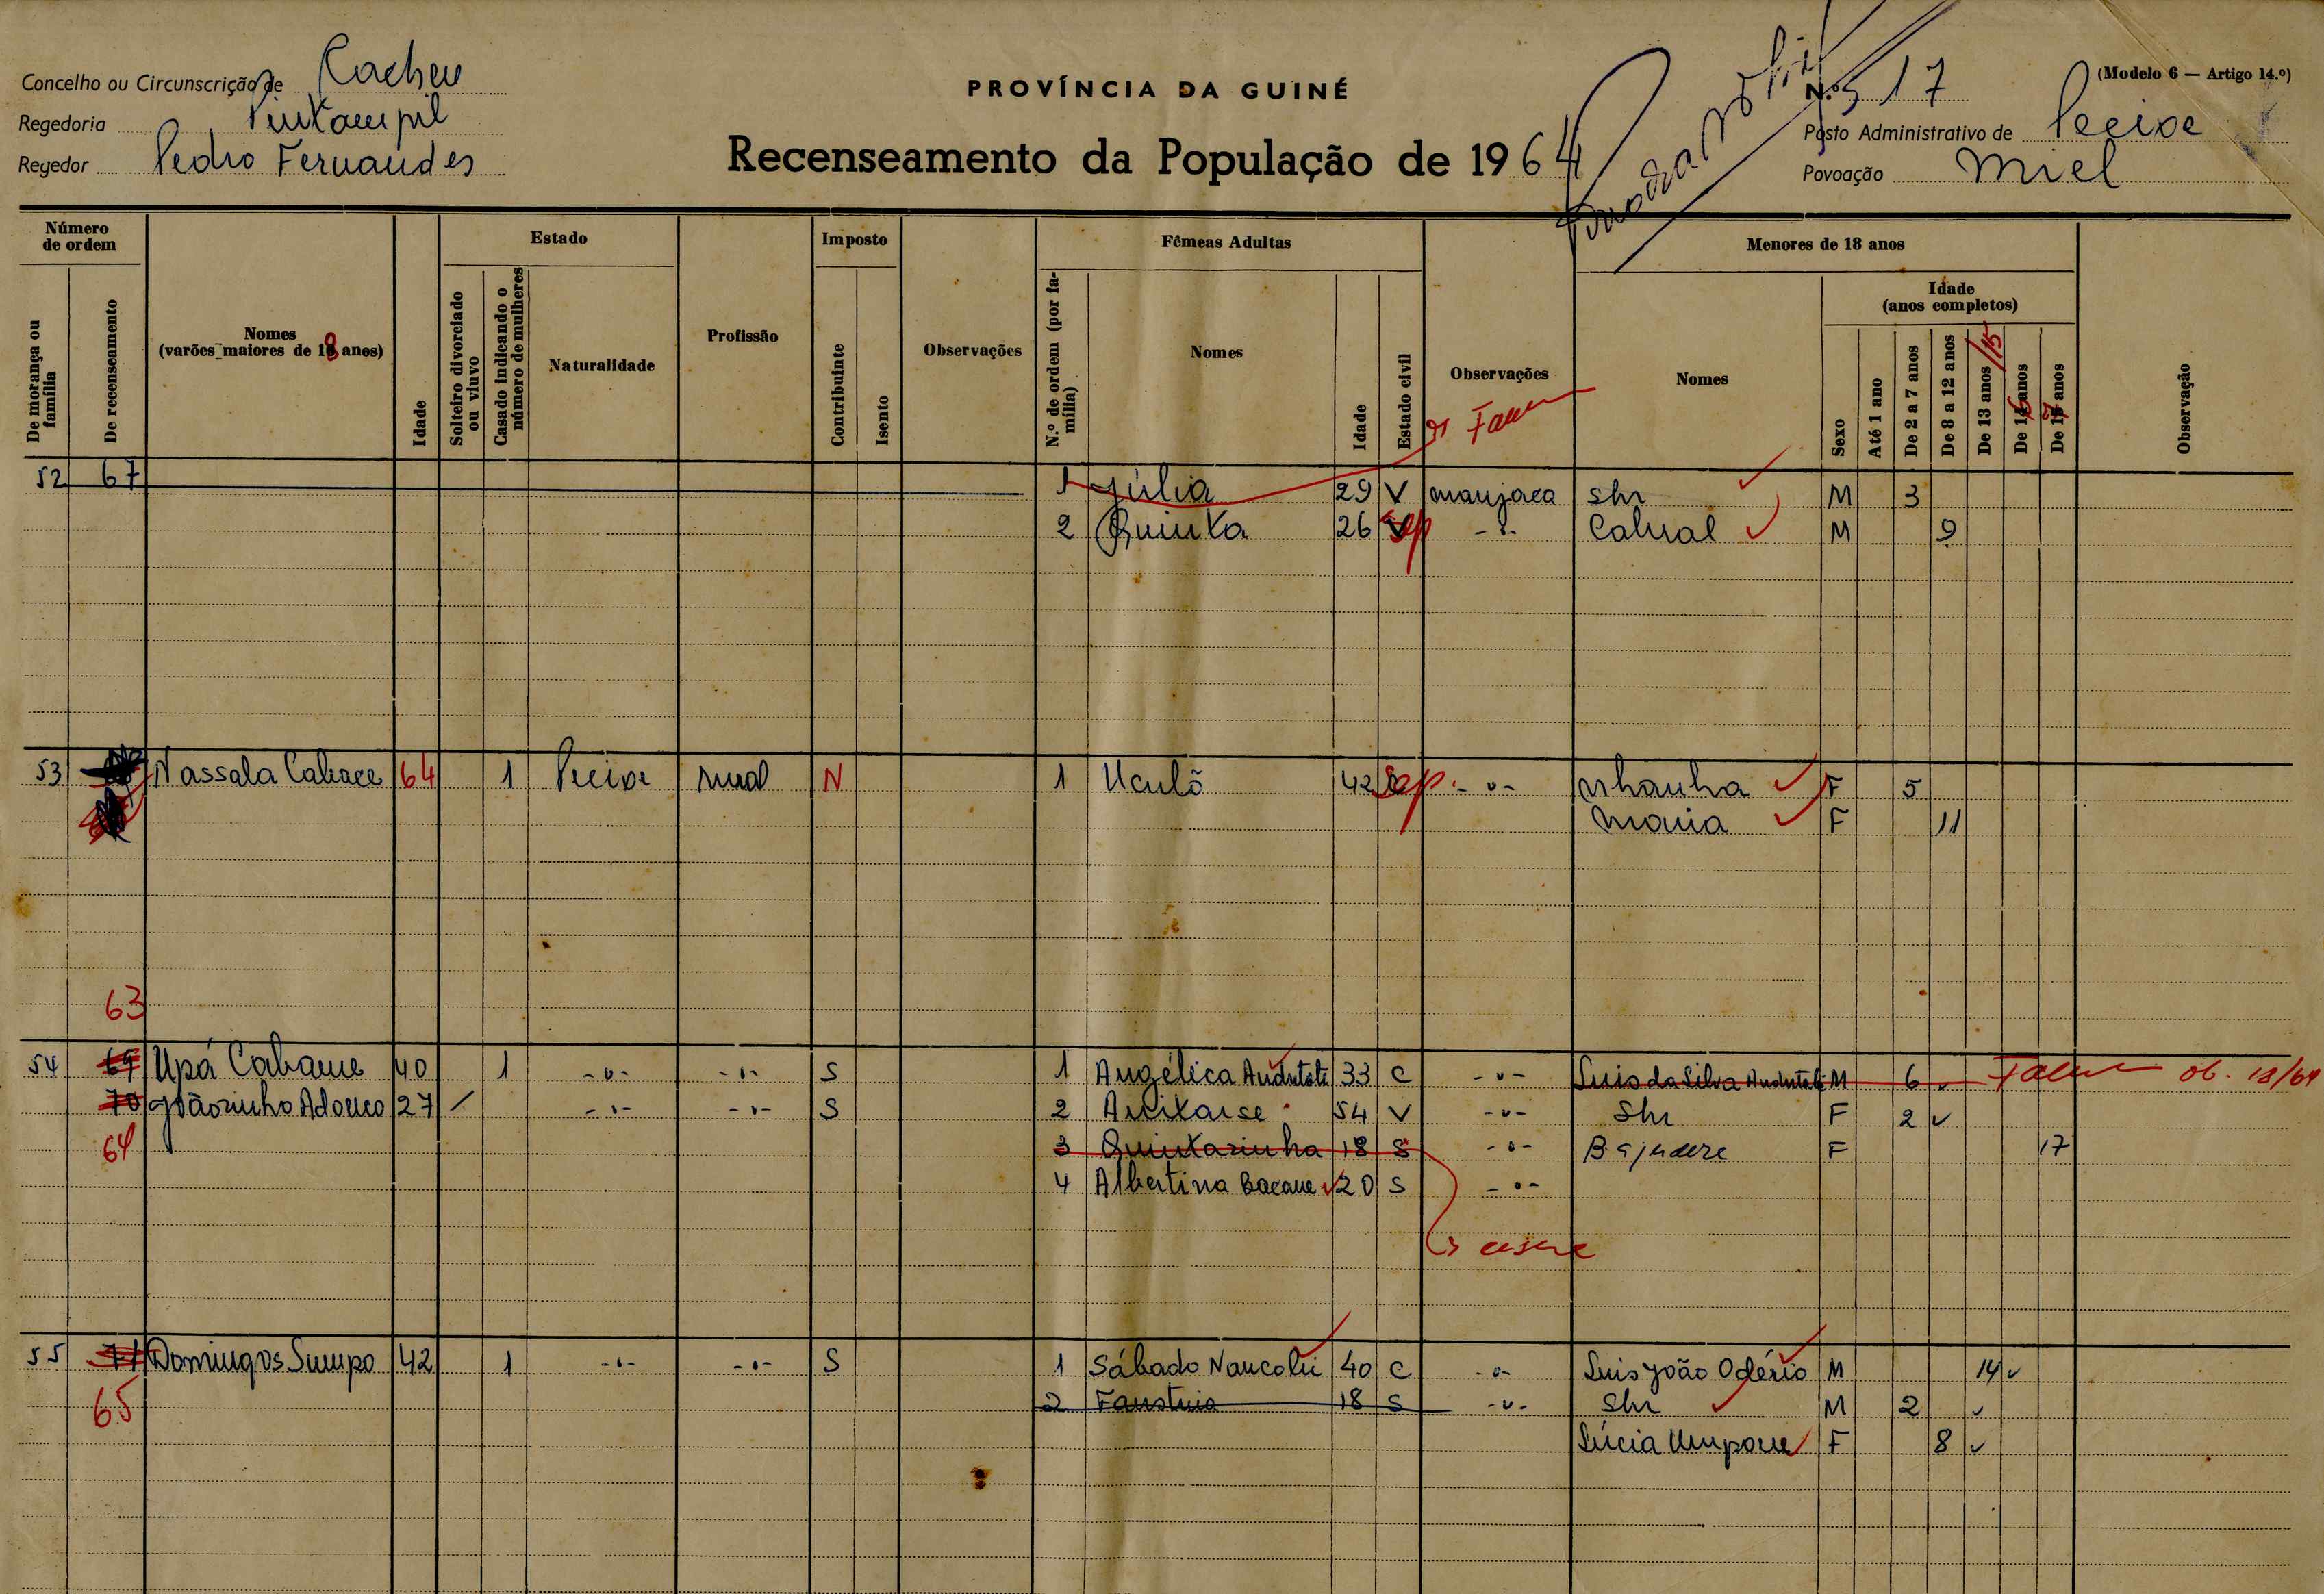 Concelho ou Circunscrição de Cacheu
PROVÍNCIA DA GUINÉ
N.º 17
(Modelo 6 — Artigo 14.º)
Regedoria
Posto Administrativo de Pecixe
Regedor Pedro Fernandes
Recenseamento da População de 1964
Povoação Miel
Número de ordem
De morança ou família
De recenseamento
Nomes (varões maiores de 18 anos)
Idade
Estado
Solteiro divorciado ou viuvo
Casado indicando o número de mulheres
Naturalidade
Profissão
Imposto
Contribuinte
Isento
Observações
Fêmeas Adultas
N.º de ordem (por família)
Nomes
Idade
Estado civil
Observações
Menores de 18 anos
Nomes
Sexo
Idade (anos completos)
Até 1 ano
De 2 a 7 anos
De 8 a 12 anos
De 13 anos /15
De 16 anos
De 17 anos
Observação
Falec
52 67 1 Júlia 29 V manjaca Shr M 3
2 Quinta 26 sep -"- Cabral M 9
53 Nassala Cabace 64 1 Pecixe rural N 1 Uculõ 42 sep. -"- Nhanha F 5
Maria F 11
63
54 69 Upá Cabame 40 1 -"- -"- S 1 Angélica Andutete 33 C -"- Luis da Silva Andutete M 6 Falec ob. 18/64
70 Joãozinho 27 -"- -"- S 2 54 V -"- Shr F 2
64 3 Quintazinha 18 S -"- F 17
4 Albertina Bacane 20 S -"-
55 71 Domingos Sumpo 42 1 -"- -"- S 1 Sábado Nancolú 40 C -"- Luis João Odério M 14
65 2 Faustina 18 S -"- Shr M 2
Lúcia Umpane F 8